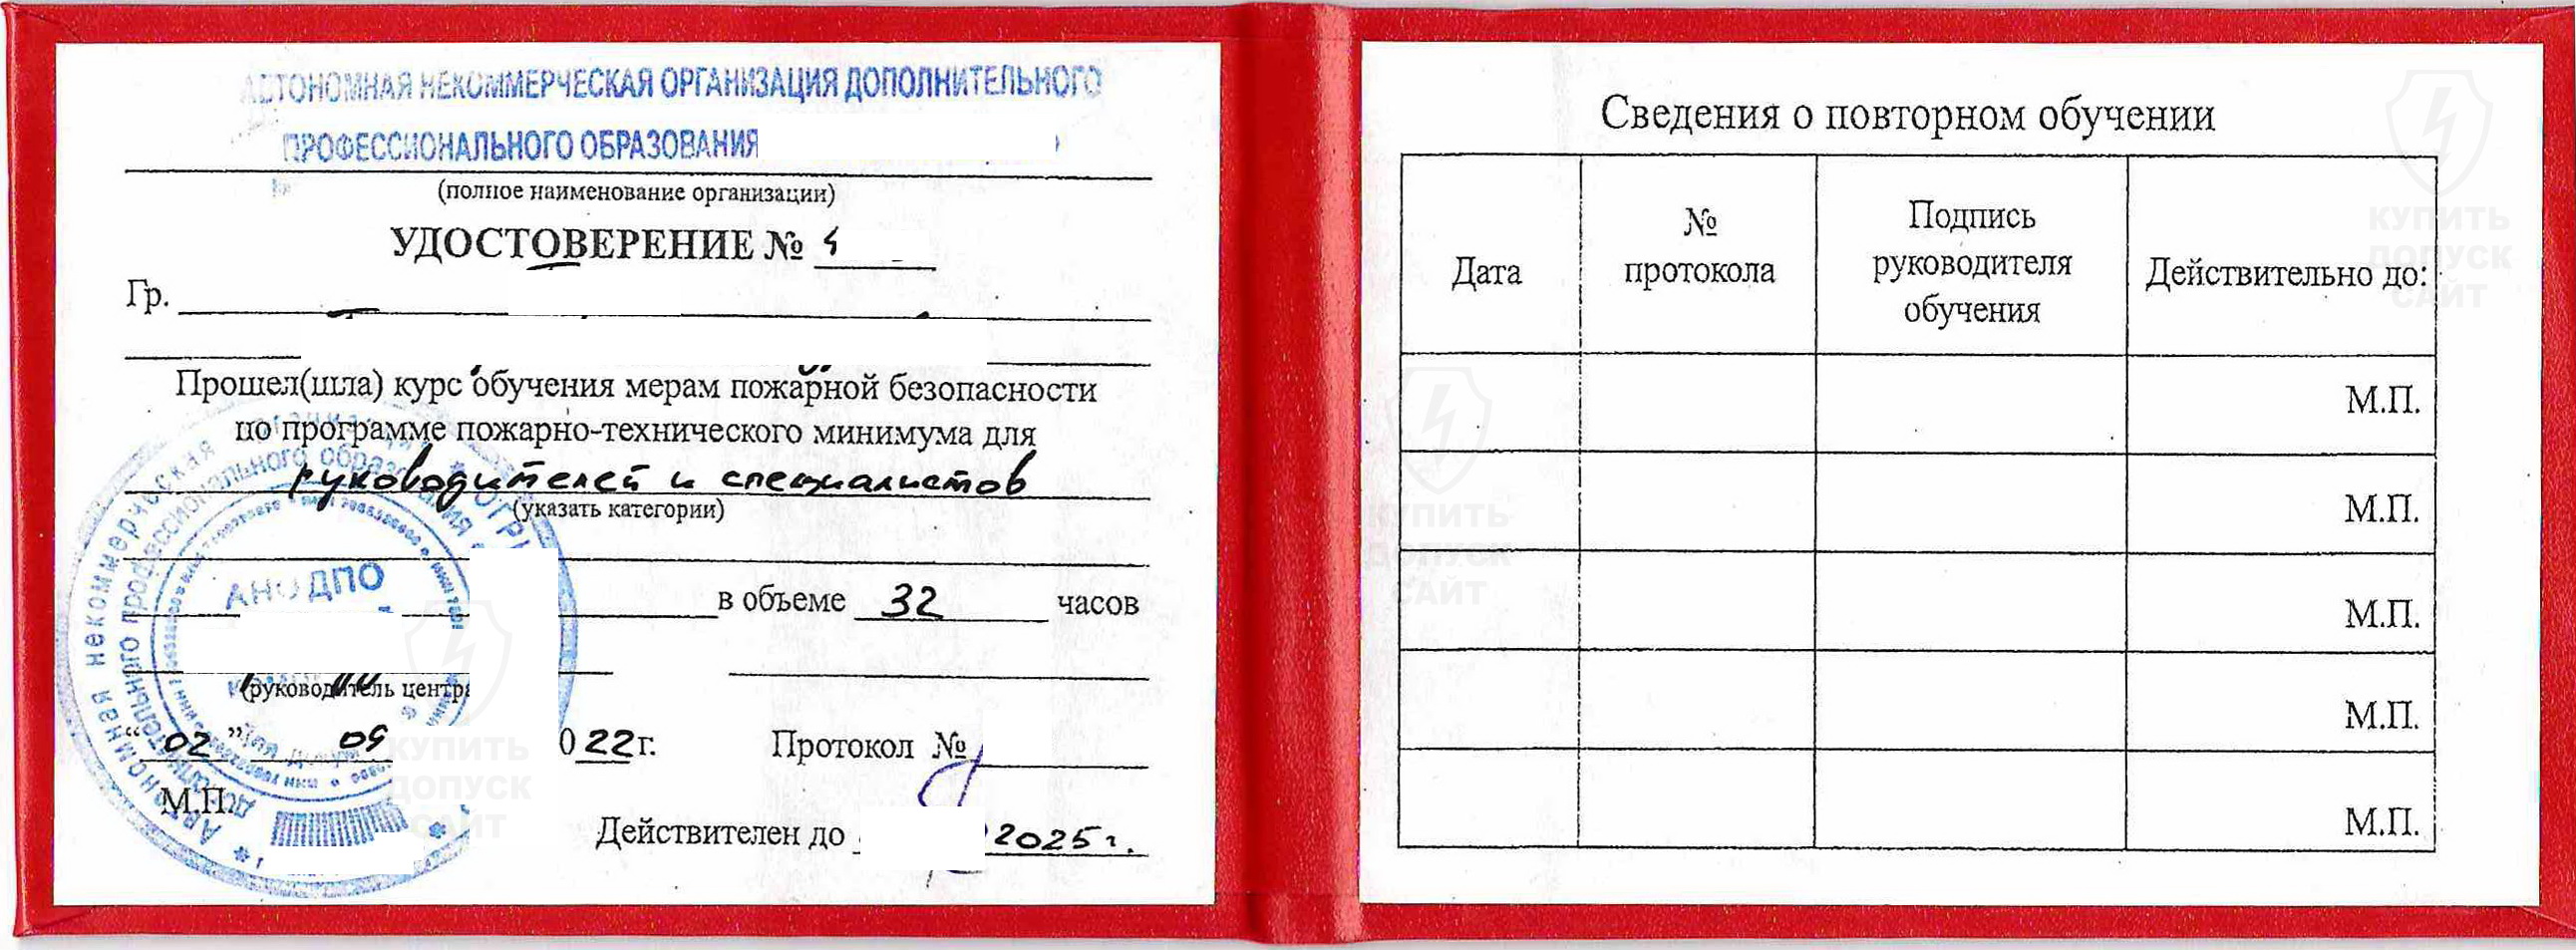 АВТОНОМНАЯ НЕКОММЕРЧЕСКАЯ ОРГАНИЗАЦИЯ ДОПОЛНИТЕЛЬНОГО
ПРОФЕССИОНАЛЬНОГО ОБРАЗОВАНИЯ
(полное наименование организации)
УДОСТОВЕРЕНИЕ №
Гр.
Прошел(шла) курс обучения мерам пожарной безопасности
по программе пожарно-технического минимума для
руководителей и специалистов
(указать категории)
АНО ДПО
в объеме 32 часов
(руководитель центра
“ 02 ” 09 022 г. Протокол №
М.П.
Действителен до 2025 г.
Автономная некоммерческая
дополнительного профессионального образования
Сведения о повторном обучении
Дата
№
протокола
Подпись
руководителя
обучения
Действительно до:
М.П.
М.П.
М.П.
М.П.
М.П.
КУПИТЬ
ДОПУСК
САЙТ
КУПИТЬ
ДОПУСК
САЙТ
КУПИТЬ
ДОПУСК
САЙТ